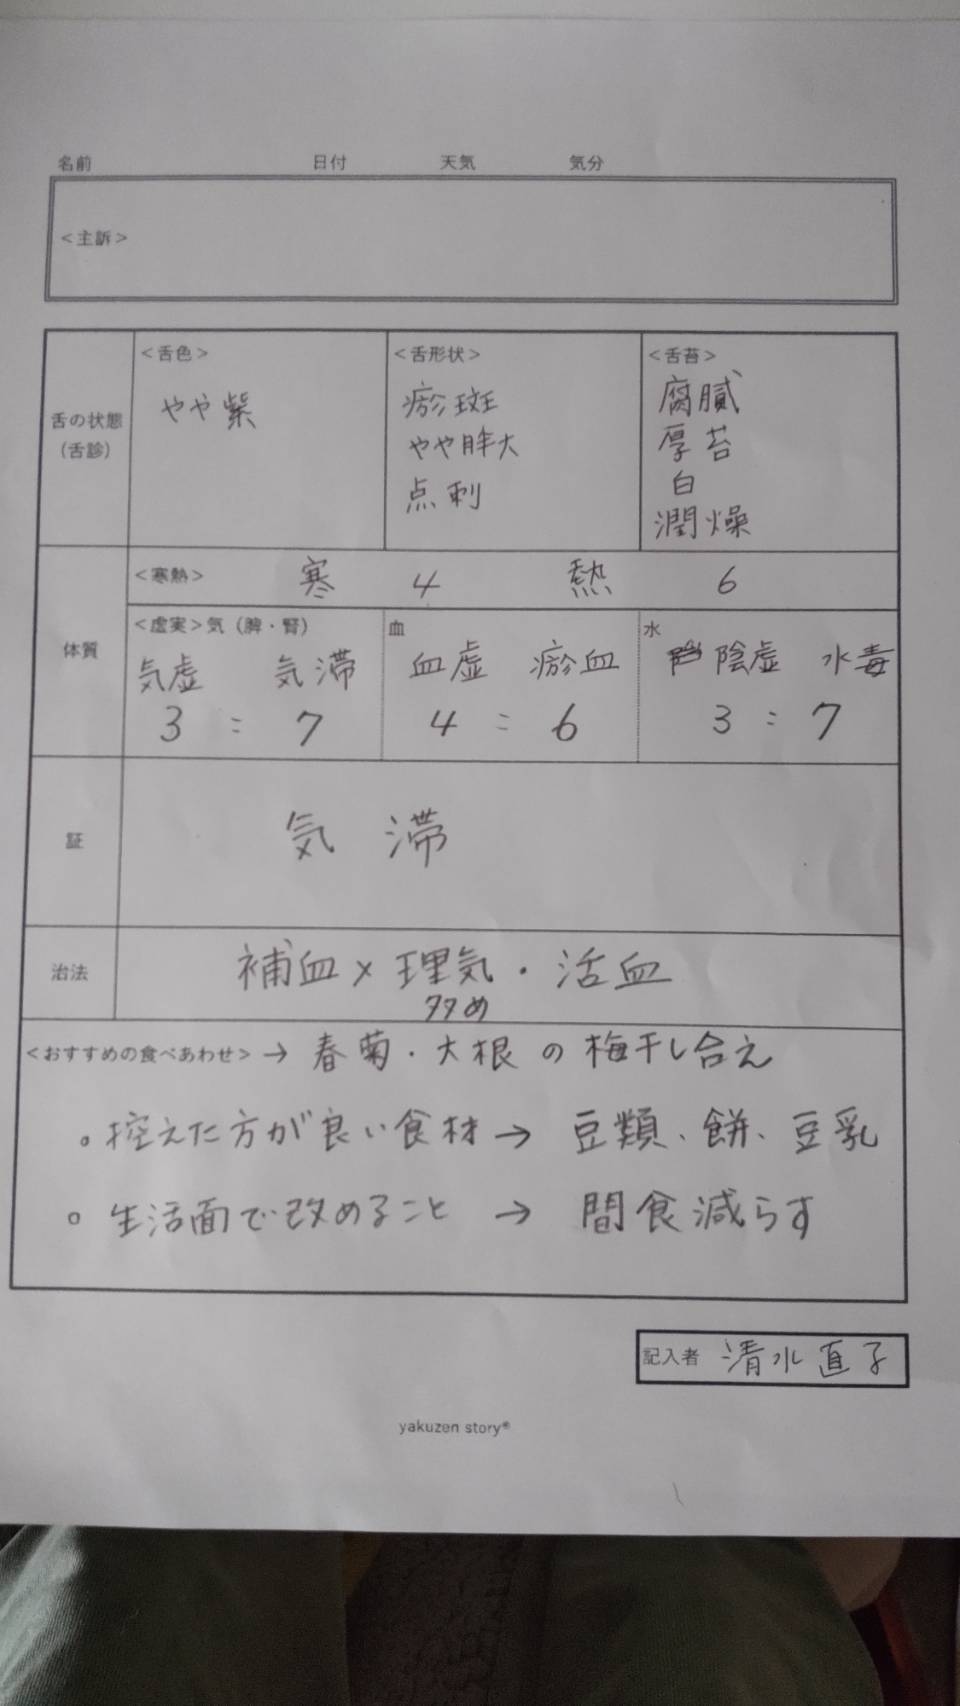 名前 日付 天気 気分
<主訴>
舌の状態
(舌診)
<舌色>
やや紫
<舌形状>
瘀斑
やや胖大
点刺
<舌苔>
腐膩
厚苔
白
潤燥
体質
<寒熱> 寒 4 熱 6
<虚実>気(脾・腎)
気虚 気滞
3 : 7
血
血虚 瘀血
4 : 6
水
陰虚 水毒
3 : 7
証
気滞
治法
補血×理気・活血
多め
<おすすめの食べあわせ>→春菊・大根の梅干し合え
。控えた方が良い食材→豆類、餅、豆乳
。生活面で改めること→間食減らす
記入者 清水直子
yakuzen story®